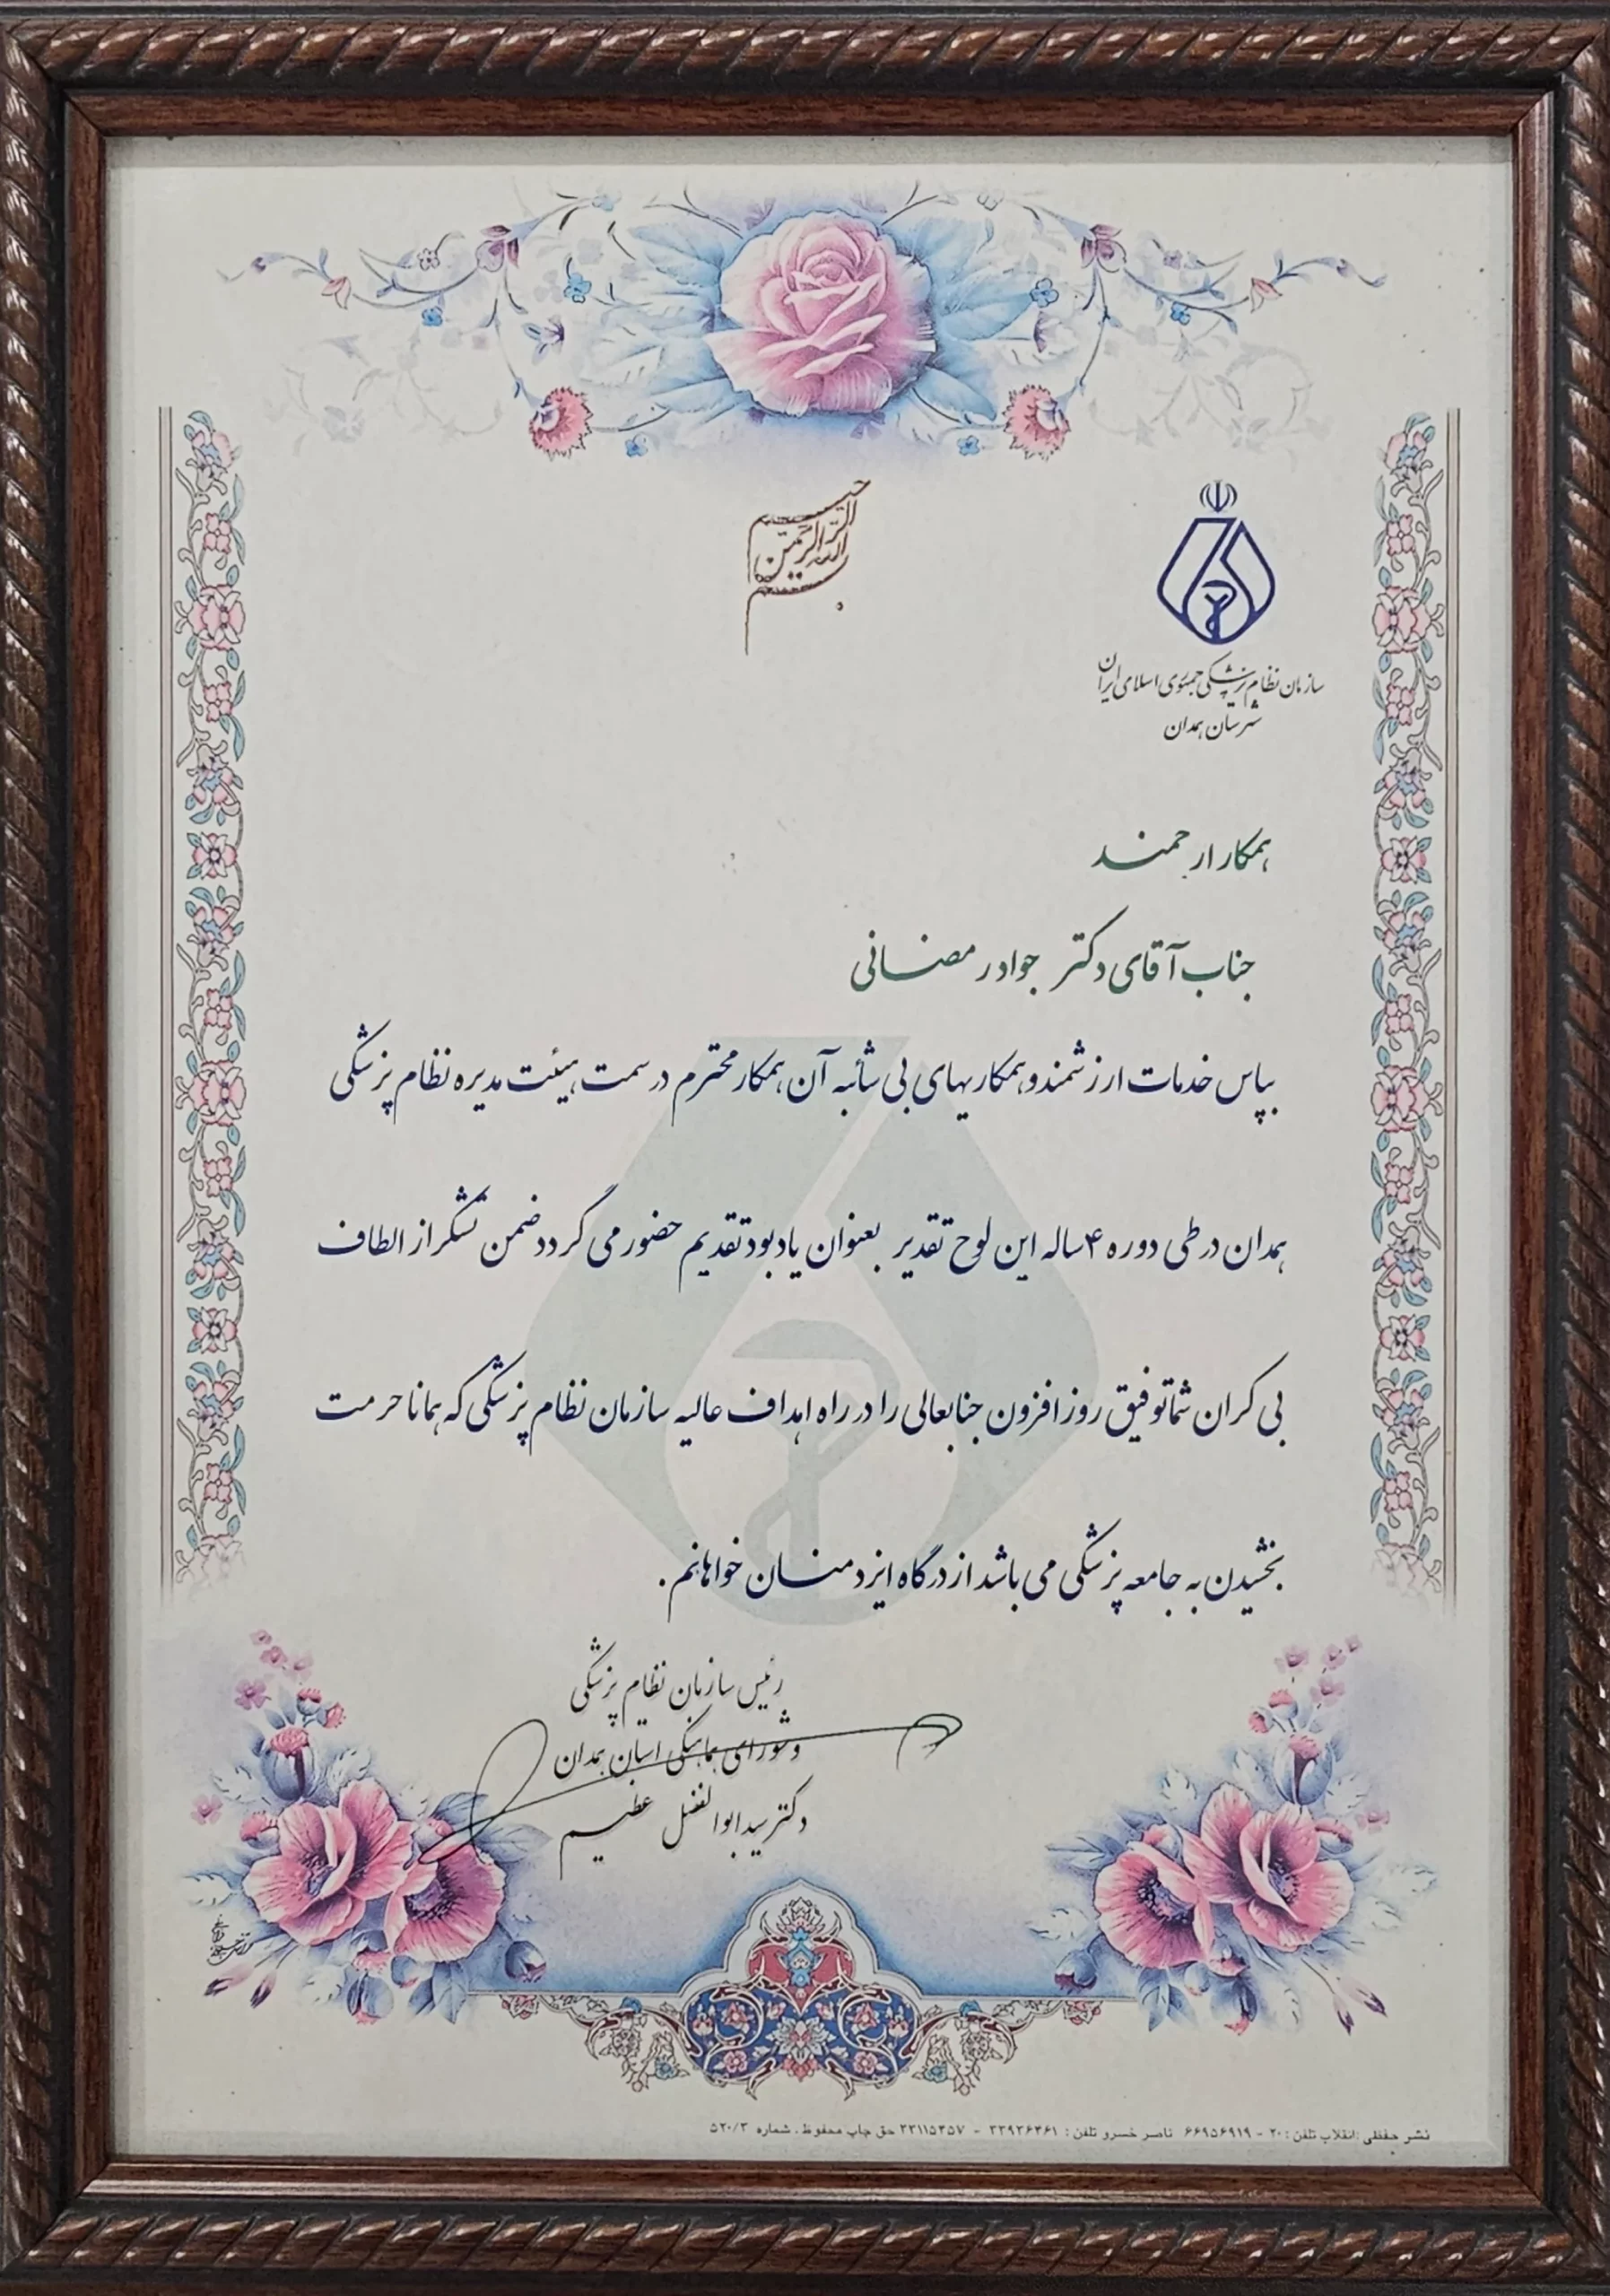 بسم الله الرحمن الرحیم
سازمان نظام پزشکی جمهوری اسلامی ایران
شهرستان همدان
همکار ارجمند
جناب آقای دکتر جواد رمضانی
بپاس خدمات ارزشمند و همکاریهای بی شائبه آن همکار محترم در سمت هیئت مدیره نظام پزشکی
همدان در طی دوره ۴ ساله این لوح تقدیر بعنوان یادبود تقدیم حضور می گردد ضمن تشکر از الطاف
بی کران شما توفیق روز افزون جنابعالی را در راه اهداف عالیه سازمان نظام پزشکی که همانا حرمت
بخشیدن به جامعه پزشکی می باشد از درگاه ایزد منان خواهانم.
رئیس سازمان نظام پزشکی
و شورای هماهنگی استان همدان
دکتر سید ابوالفضل عظیم
نشر حفظی: انقلاب تلفن: ۲۰ - ۶۶۹۵۶۹۱۹ ناصر خسرو تلفن: ۳۳۹۲۶۴۶۱ - ۳۳۱۱۵۳۵۷ حق چاپ محفوظ. شماره ۵۲۰/۳